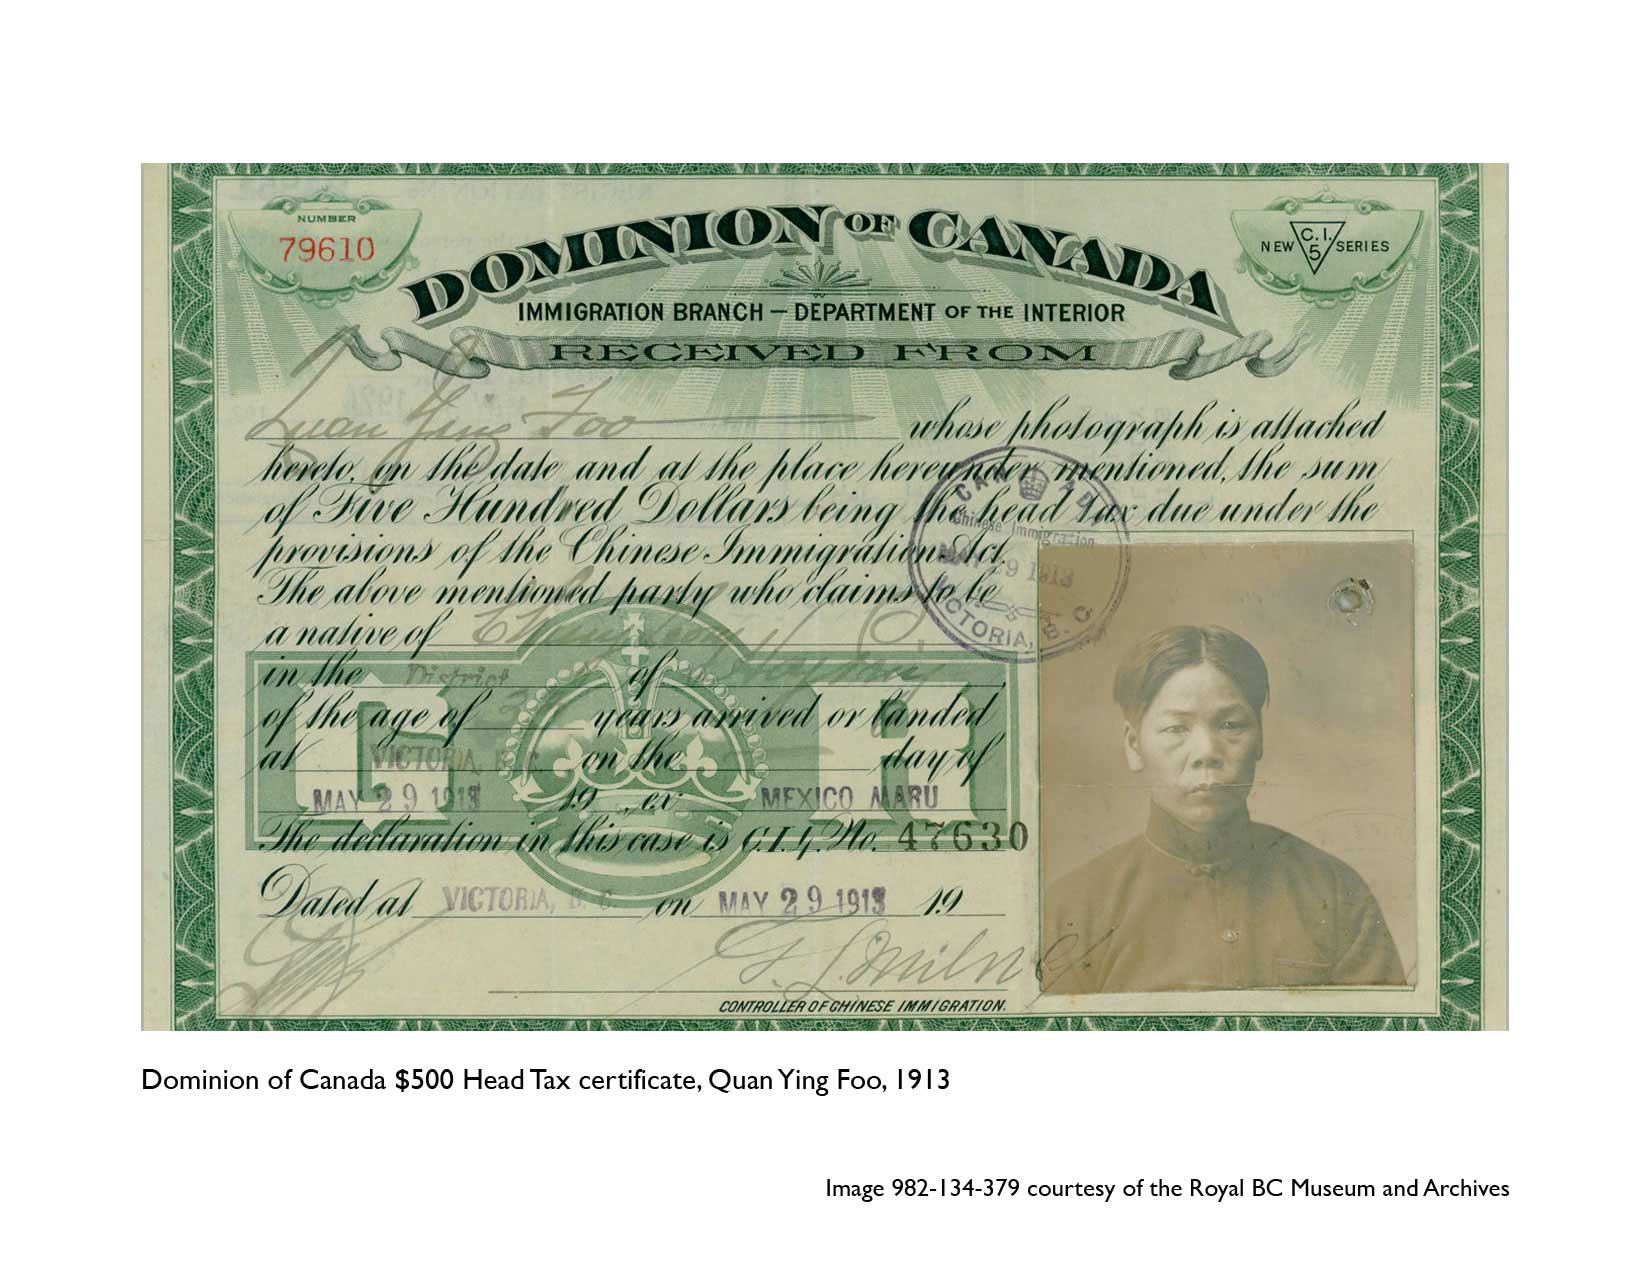 NUMBER
79610
DOMINION OF CANADA
NEW C.I. 5 SERIES
IMMIGRATION BRANCH — DEPARTMENT OF THE INTERIOR
RECEIVED FROM
Quan Ying Foo whose photograph is attached
hereto, on the date and at the place hereunder mentioned, the sum
of Five Hundred Dollars being the head tax due under the
provisions of the Chinese Immigration Act.
The above mentioned party who claims to be
a native of
in the District of
of the age of years arrived or landed
at VICTORIA, B.C. on the day of
MAY 29 1913 19 , ex MEXICO MARU
The declaration in this case is C.I.4. No. 47630
Dated at VICTORIA, B.C. on MAY 29 1913 19
CANADA
Chinese Immigration
MAY 29 1913
VICTORIA, B.C.
G. L. Milne
CONTROLLER OF CHINESE IMMIGRATION.
G R
Dominion of Canada $500 Head Tax certificate, Quan Ying Foo, 1913
Image 982-134-379 courtesy of the Royal BC Museum and Archives